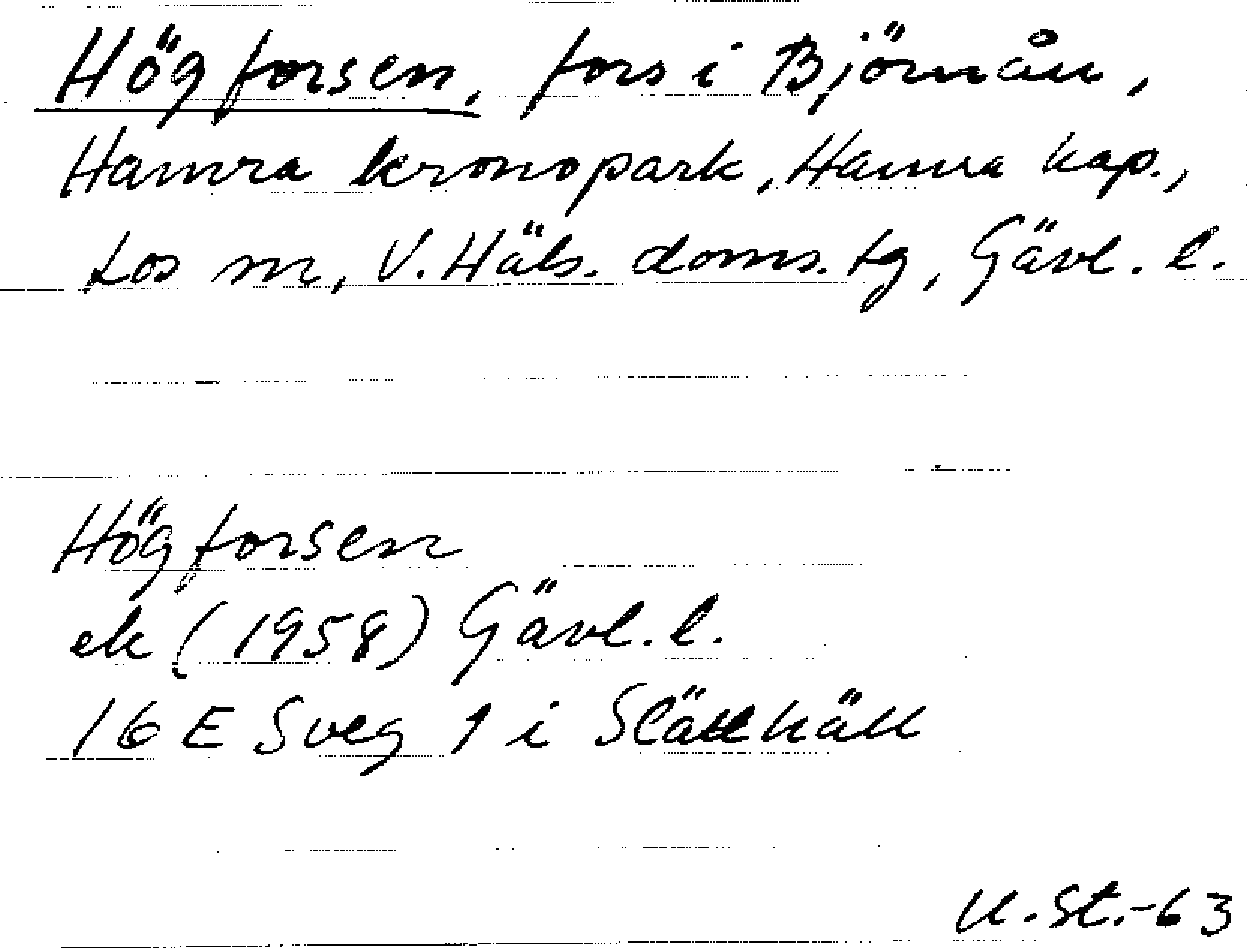 Högforsen, fors i Björnån,
Hamra kronopark, Hamra kap.,
Los sn, V. Häls. doms. tg, Gävl. l.
Högforsen
ek (1958) Gävl. l.
16 E Sveg 1 i
U. St. -63